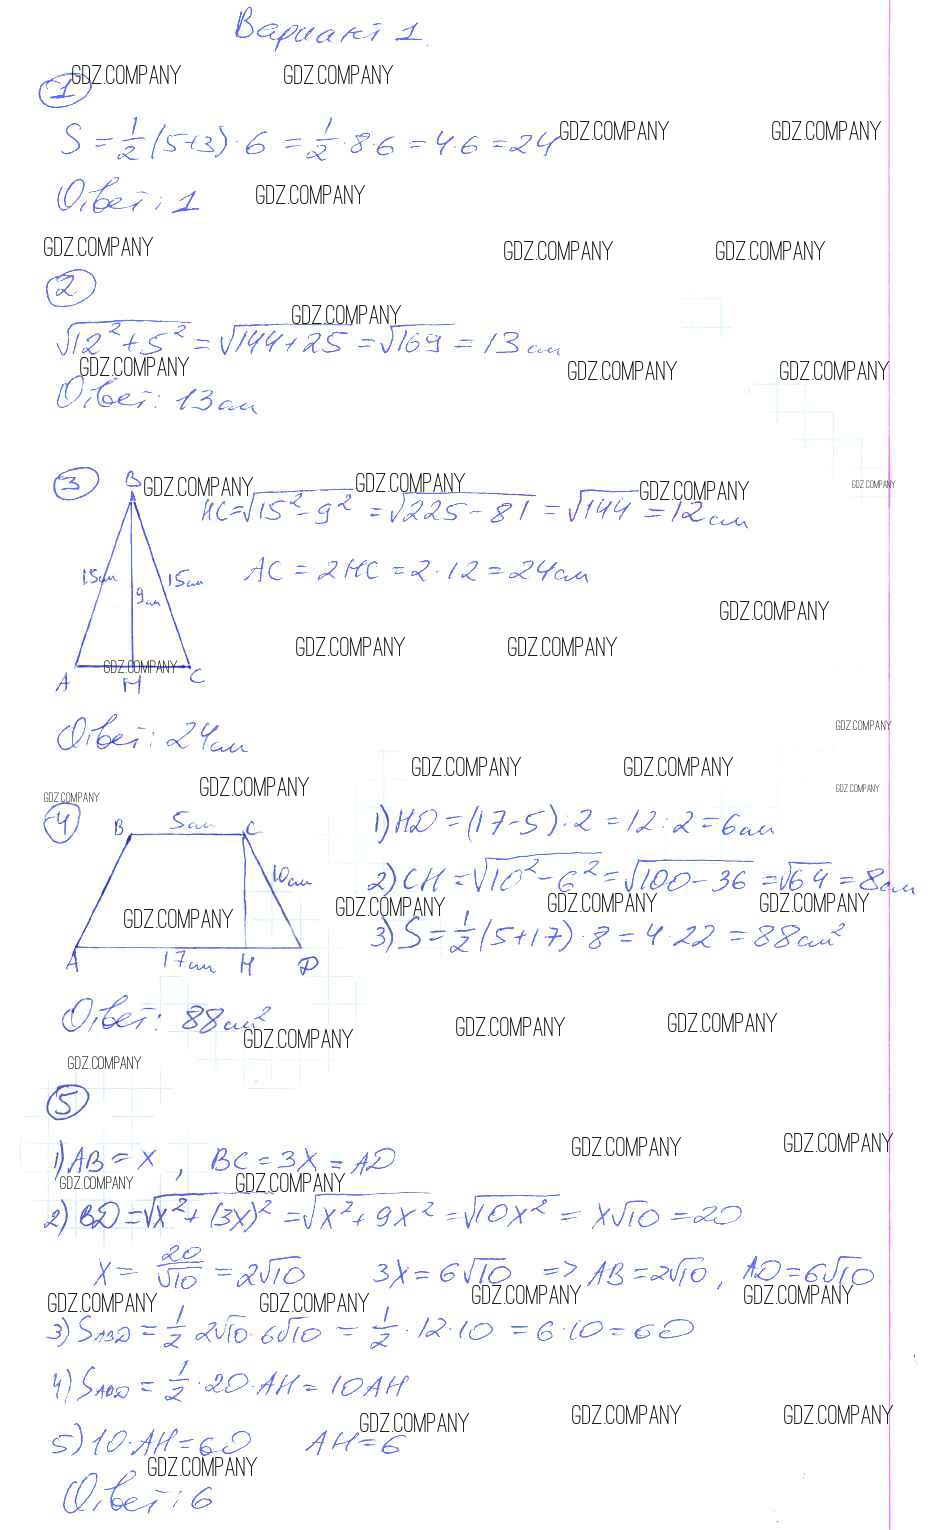 Вариант 1
GDZ.COMPANY GDZ.COMPANY
1
GDZ.COMPANY GDZ.COMPANY
S = 1/2 (5+3) · 6 = 1/2 · 8 · 6 = 4 · 6 = 24
Ответ: 1 GDZ.COMPANY
GDZ.COMPANY GDZ.COMPANY GDZ.COMPANY
2
GDZ.COMPANY
√(12² + 5²) = √(144 + 25) = √169 = 13 см
GDZ.COMPANY GDZ.COMPANY GDZ.COMPANY
Ответ: 13 см
3 B GDZ.COMPANY GDZ.COMPANY GDZ.COMPANY GDZ.COMPANY
MC = √(15² - 9²) = √(225 - 81) = √144 = 12 см
15см 9см 15см AC = 2MC = 2 · 12 = 24 см
GDZ.COMPANY
GDZ.COMPANY GDZ.COMPANY
GDZ.COMPANY
A M C
GDZ.COMPANY
Ответ: 24 см
GDZ.COMPANY GDZ.COMPANY
GDZ.COMPANY GDZ.COMPANY GDZ.COMPANY
4 B 5см C 1) HD = (17-5) : 2 = 12 : 2 = 6 см
10см 2) CH = √(10² - 6²) = √(100 - 36) = √64 = 8 см
GDZ.COMPANY GDZ.COMPANY GDZ.COMPANY GDZ.COMPANY
3) S = 1/2 (5+17) · 8 = 4 · 22 = 88 см²
A 17см H D
Ответ: 88 см²
GDZ.COMPANY GDZ.COMPANY GDZ.COMPANY
GDZ.COMPANY
5
GDZ.COMPANY GDZ.COMPANY
1) AB = x , BC = 3x = AD
GDZ.COMPANY GDZ.COMPANY
2) BD = √(x² + (3x)²) = √(x² + 9x²) = √(10x²) = x√10 = 20
x = 20/√10 = 2√10 3x = 6√10 => AB = 2√10 , AD = 6√10
GDZ.COMPANY GDZ.COMPANY GDZ.COMPANY GDZ.COMPANY
3) S ABD = 1/2 2√10 · 6√10 = 1/2 · 12 · 10 = 6 · 10 = 60
4) S ABD = 1/2 · 20 · AH = 10AH
GDZ.COMPANY GDZ.COMPANY GDZ.COMPANY
5) 10 · AH = 60 AH = 6
GDZ.COMPANY
Ответ: 6